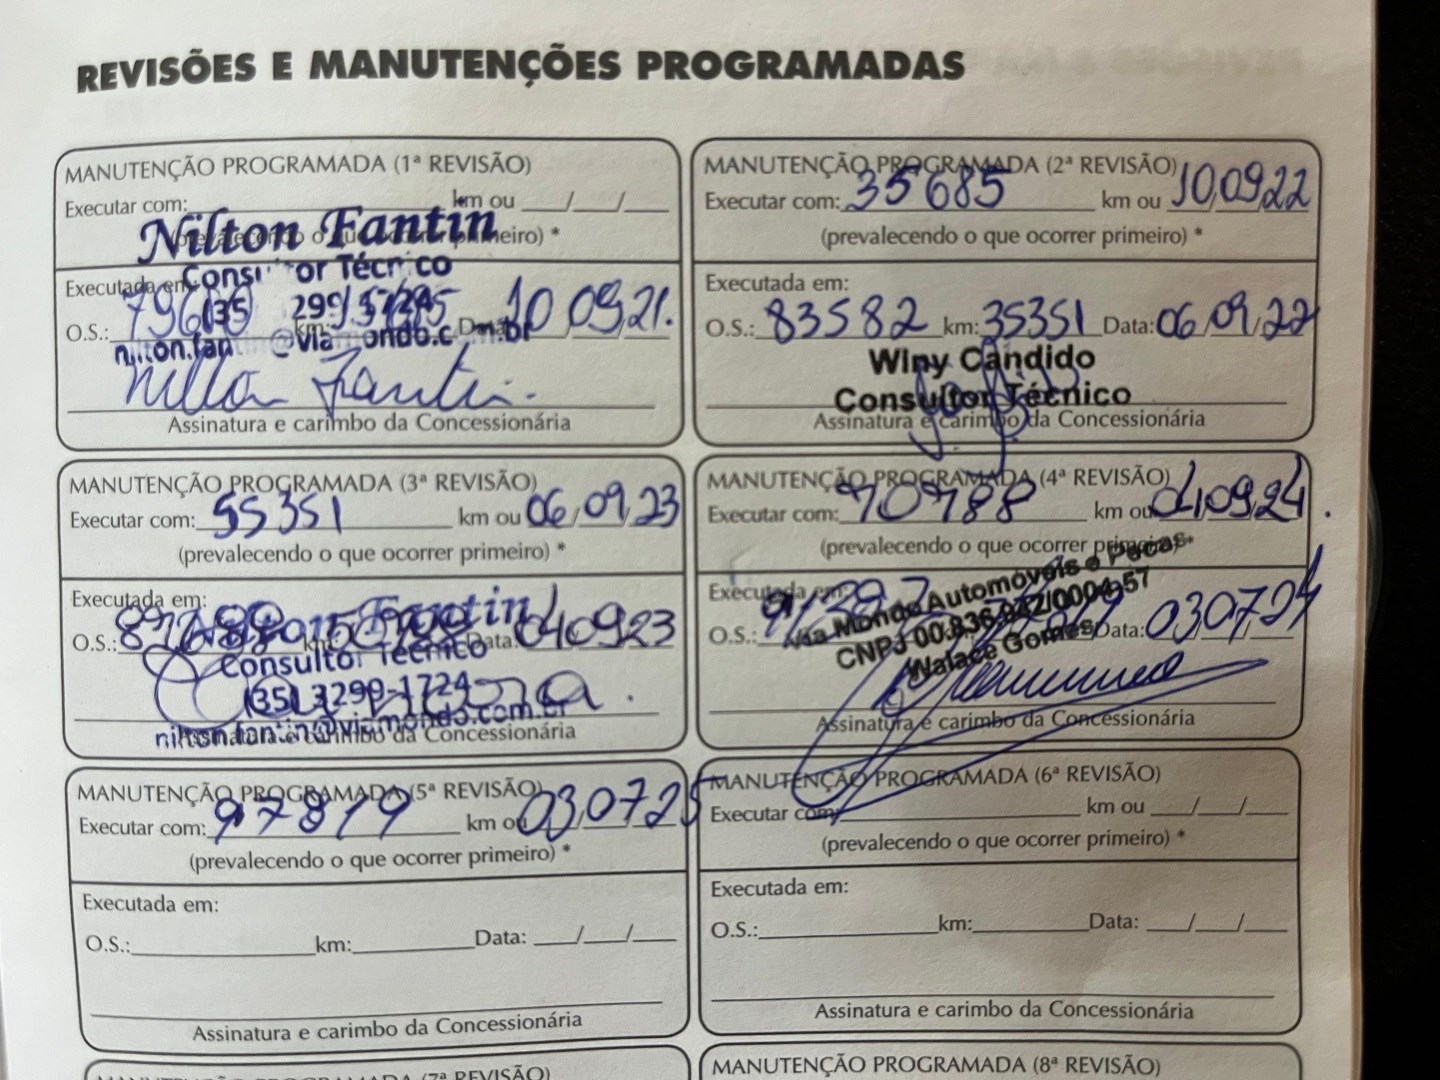 REVISÕES E MANUTENÇÕES PROGRAMADAS
MANUTENÇÃO PROGRAMADA (1ª REVISÃO)
Executar com: km ou __/__/__
Nilton Fantin
(prevalecendo o que ocorrer primeiro) *
Consultor Técnico
Executada em:
O.S.: km: Data: 10 09 21.
Nilton Fantin
Assinatura e carimbo da Concessionária
MANUTENÇÃO PROGRAMADA (2ª REVISÃO)
Executar com: 35685 km ou 10/09/22
(prevalecendo o que ocorrer primeiro) *
Executada em:
O.S.: 83582 km: 35351 Data: 06/09/22
Winy Candido
Consultor Técnico
Assinatura e carimbo da Concessionária
MANUTENÇÃO PROGRAMADA (3ª REVISÃO)
Executar com: 55351 km ou 06/09/23
(prevalecendo o que ocorrer primeiro) *
Executada em:
Nilton Fantin
O.S.: km: 50788 Data: 04 09 23
Consultor Técnico
(35) 3299-1724
nilton.fantin@viamondo.com.br
Assinatura e carimbo da Concessionária
MANUTENÇÃO PROGRAMADA (4ª REVISÃO)
Executar com: 70788 km ou 04/09/24.
(prevalecendo o que ocorrer primeiro) *
Executada em:
Via Mondo Automóveis e Peças
O.S.: Data: 03 07 24
CNPJ 00.836.942/0004-57
Walace Gomes
Assinatura e carimbo da Concessionária
MANUTENÇÃO PROGRAMADA (5ª REVISÃO)
Executar com: 97819 km ou 03/07/25
(prevalecendo o que ocorrer primeiro) *
Executada em:
O.S.: km: Data: __/__/__
Assinatura e carimbo da Concessionária
MANUTENÇÃO PROGRAMADA (6ª REVISÃO)
Executar com: km ou __/__/__
(prevalecendo o que ocorrer primeiro) *
Executada em:
O.S.: km: Data: __/__/__
Assinatura e carimbo da Concessionária
MANUTENÇÃO PROGRAMADA (7ª REVISÃO)
MANUTENÇÃO PROGRAMADA (8ª REVISÃO)